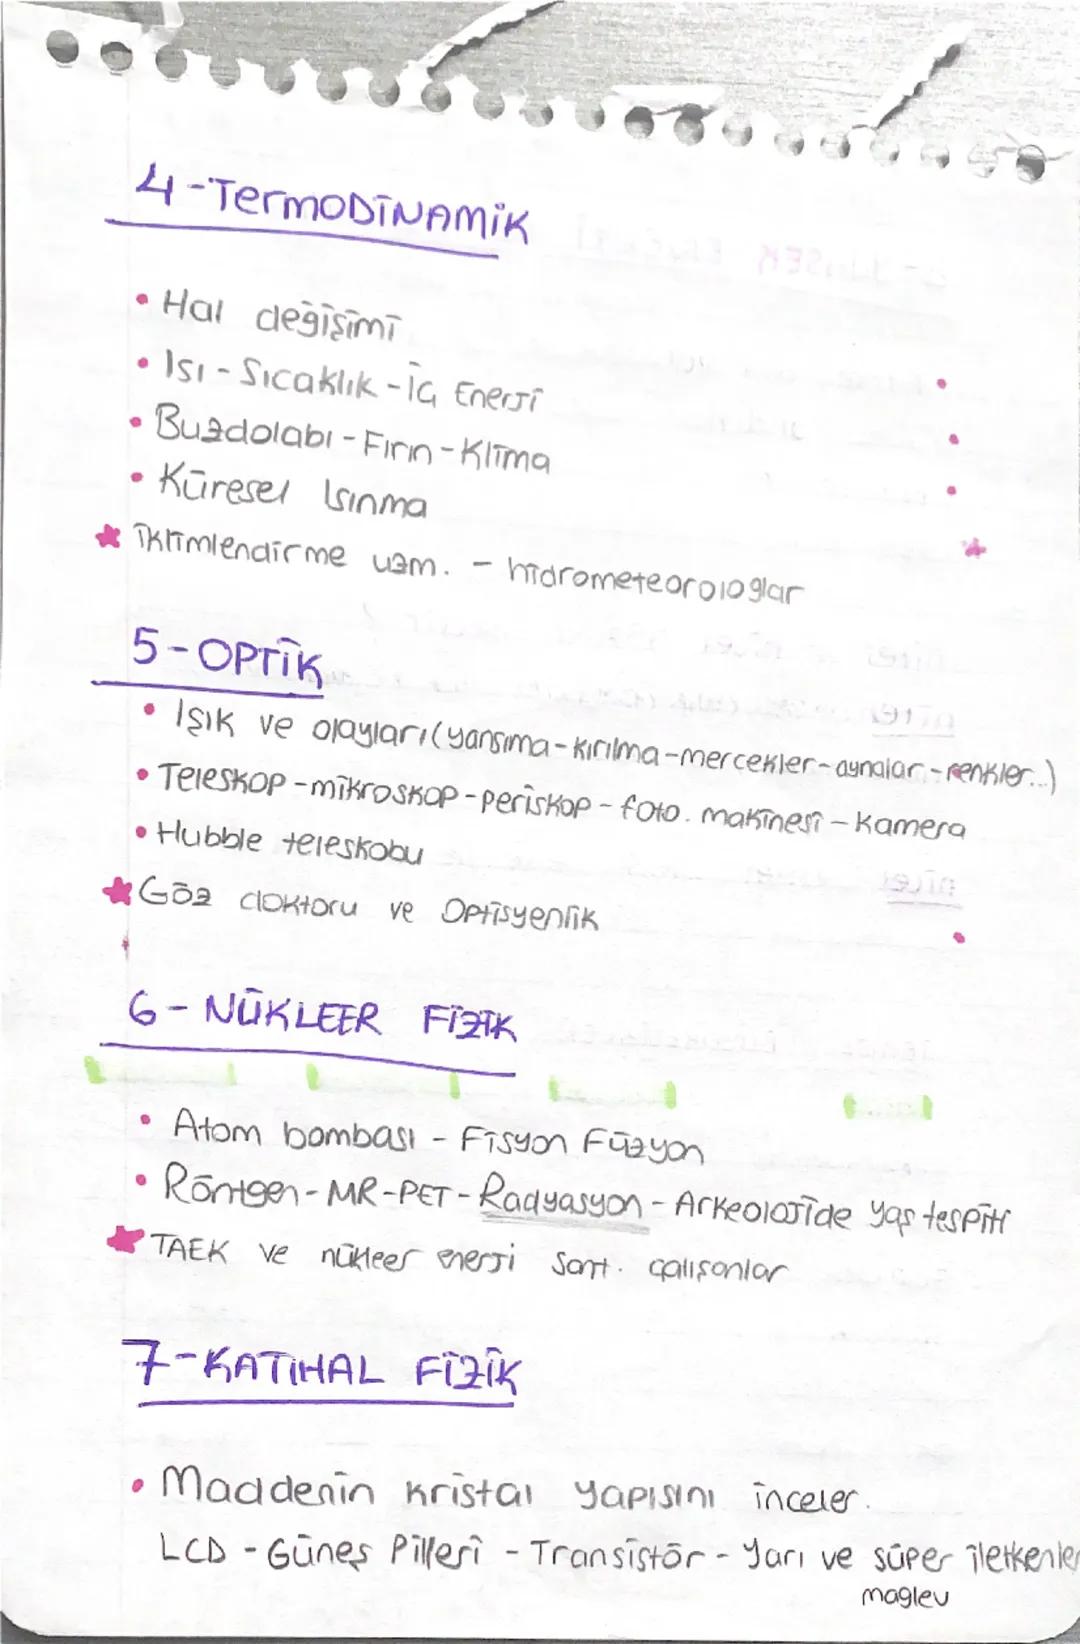 4-TERMODİNAMİK
• Hal değişimi
• Isı - Sıcaklık - İç Enerji
• Buzdolabı - Fırın - Klima
• Küresel Isınma
★ iklimlendirme uzm. - hidrometeorologlar
5-OPTİK
• Işık ve olayları (yansıma-kırılma-mercekler-aynalar-renkler...)
• Teleskop-mikroskop-periskop - foto. makinesi - Kamera
• Hubble teleskobu
★ Göz doktoru ve Optisyenlik
6- NÜKLEER FİZİK
• Atom bombası - Fisyon Füzyon
• Röntgen-MR-PET-Radyasyon-Arkeolojide yaş tespiti
★ TAEK ve nükleer enerji sant. çalışanlar
7-KATIHAL FİZİK
• Maddenin kristal yapısını inceler.
LCD - Güneş Pilleri - Transistör - Yarı ve süper iletkenler
maglev